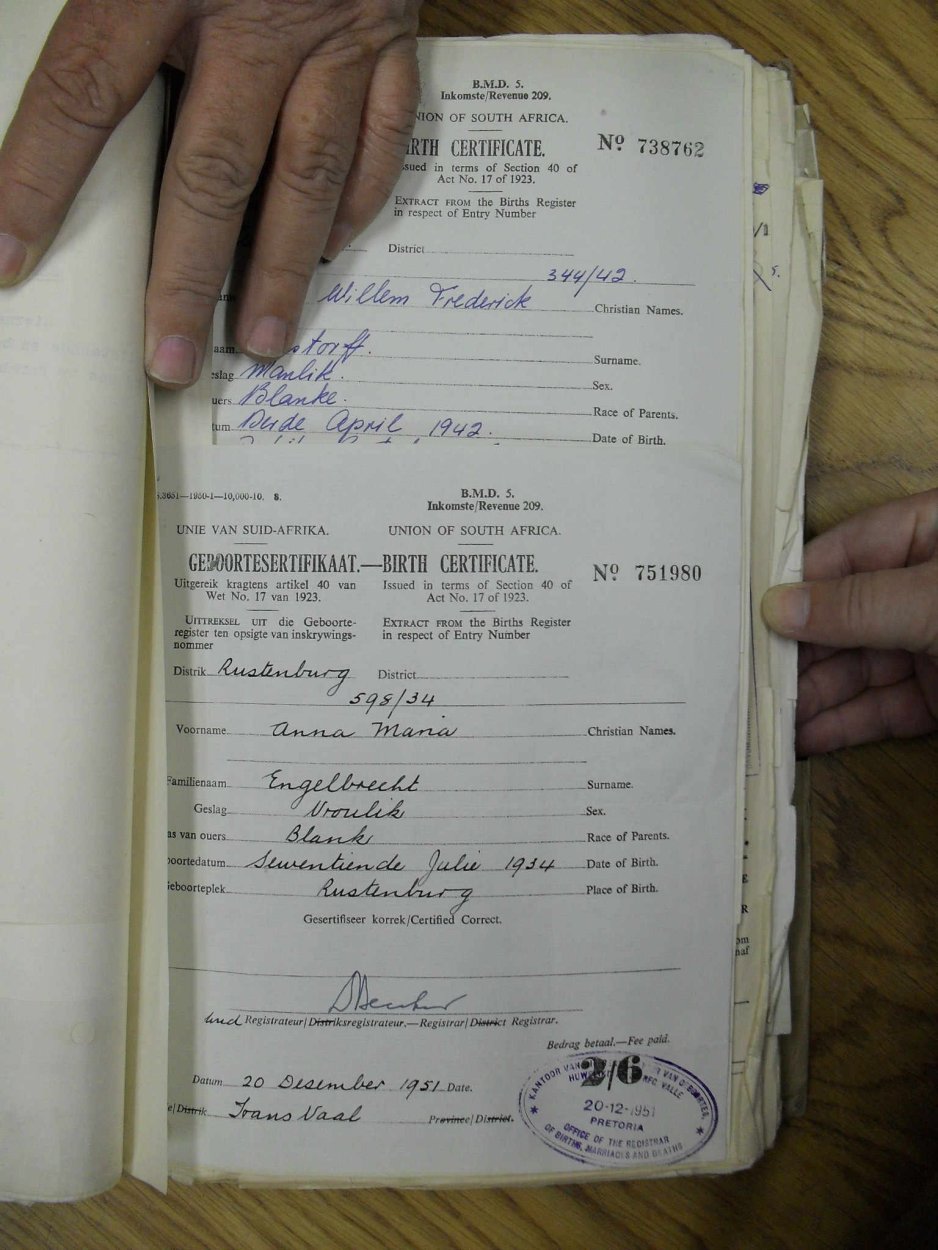 B.M.D. 5.
Inkomste/Revenue 209.
NION OF SOUTH AFRICA.
IRTH CERTIFICATE.
Nº 738762
ssued in terms of Section 40 of
Act No. 17 of 1923.
EXTRACT FROM the Births Register
in respect of Entry Number
District
344/42.
Willem Frederick Christian Names.
storff. Surname.
eslag Manlik. Sex.
uers Blanke. Race of Parents.
tum Derde April 1942. Date of Birth.
3651—1950-1—10,000-10. S.
B.M.D. 5.
Inkomste/Revenue 209.
UNIE VAN SUID-AFRIKA. UNION OF SOUTH AFRICA.
GEBOORTESERTIFIKAAT.—BIRTH CERTIFICATE. Nº 751980
Uitgereik kragtens artikel 40 van Issued in terms of Section 40 of
Wet No. 17 van 1923. Act No. 17 of 1923.
UITTREKSEL UIT die Geboorte- EXTRACT FROM the Births Register
register ten opsigte van inskrywings- in respect of Entry Number
nommer
Distrik Rustenburg District
598/34
Voorname Anna Maria Christian Names.
Familienaam Engelbrecht Surname.
Geslag Vroulik Sex.
as van ouers Blank Race of Parents.
oortedatum Sewentiende Julie 1934 Date of Birth.
eboorteplek Rustenburg Place of Birth.
Gesertifiseer korrek/Certified Correct.
Registrateur/Distriksregistrateur.—Registrar/District Registrar.
Bedrag betaal.—Fee paid.
2/6
Datum 20 Desember 1951 Date.
e/Distrik Transvaal Province/District.
KANTOOR VAN
20-12-1951
PRETORIA
OFFICE OF THE REGISTRAR
OF BIRTHS, MARRIAGES AND DEATHS